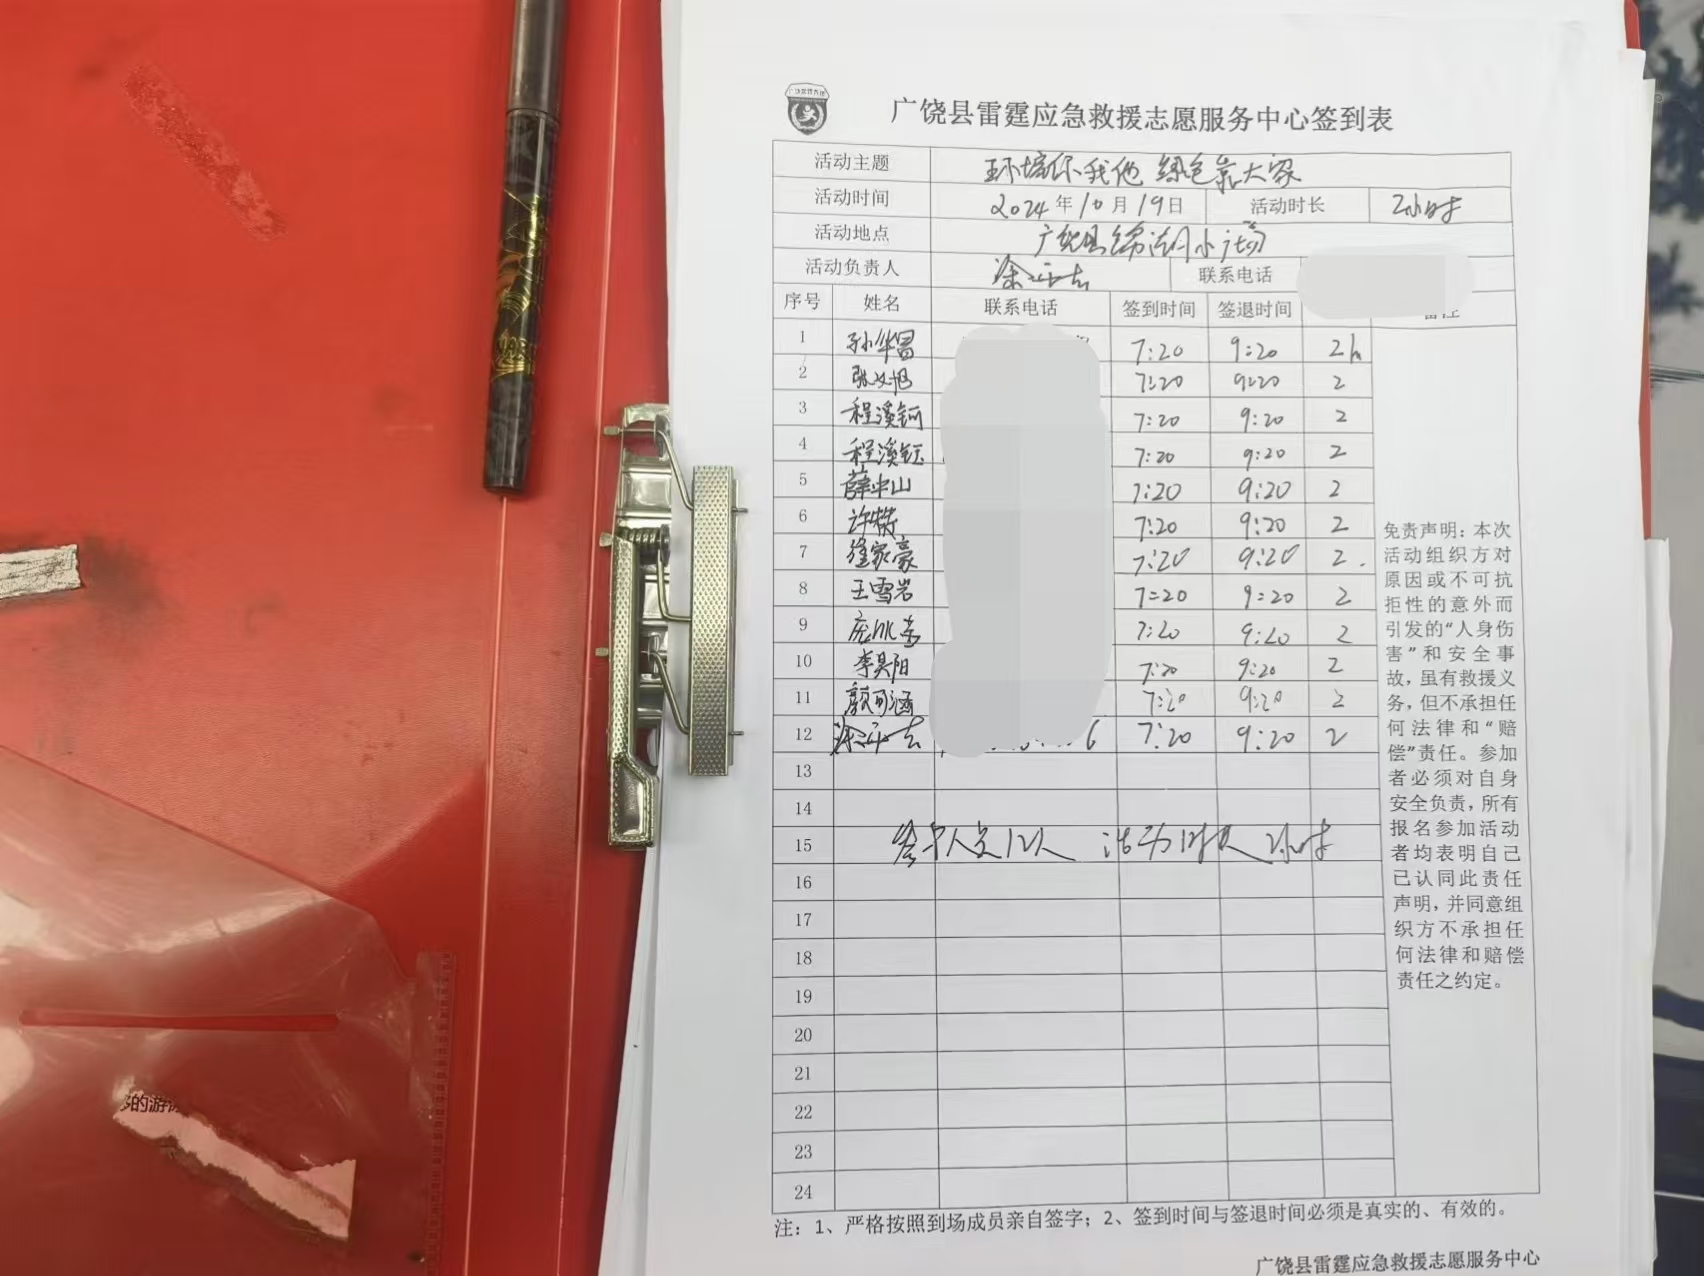 广饶县雷霆应急救援志愿服务中心签到表
活动主题 环境你我他 绿色靠大家
活动时间 2024年10月19日 活动时长 2小时
活动地点 广饶县
活动负责人 联系电话
序号 姓名 联系电话 签到时间 签退时间
1 孙华昌 7:20 9:20 2h
2 7:20 9:20 2
3 程溪钶 7:20 9:20 2
4 程溪钰 7:20 9:20 2
5 薛中山 7:20 9:20 2
6 7:20 9:20 2
7 家豪 7:20 9:20 2
8 王雪岩 7:20 9:20 2
9 7:20 9:20 2
10 李昊阳 7:20 9:20 2
11 7:20 9:20 2
12 6 7:20 9:20 2
13
14
15 签字人员12人 活动时长2小时
16
17
18
19
20
21
22
23
24
免责声明：本次
活动组织方对
原因或不可抗
拒性的意外而
引发的“人身伤
害”和安全事
故，虽有救援义
务，但不承担任
何法律和“赔
偿”责任。参加
者必须对自身
安全负责，所有
报名参加活动
者均表明自己
已认同此责任
声明，并同意组
织方不承担任
何法律和赔偿
责任之约定。
注：1、严格按照到场成员亲自签字；2、签到时间与签退时间必须是真实的、有效的。
广饶县雷霆应急救援志愿服务中心
的游